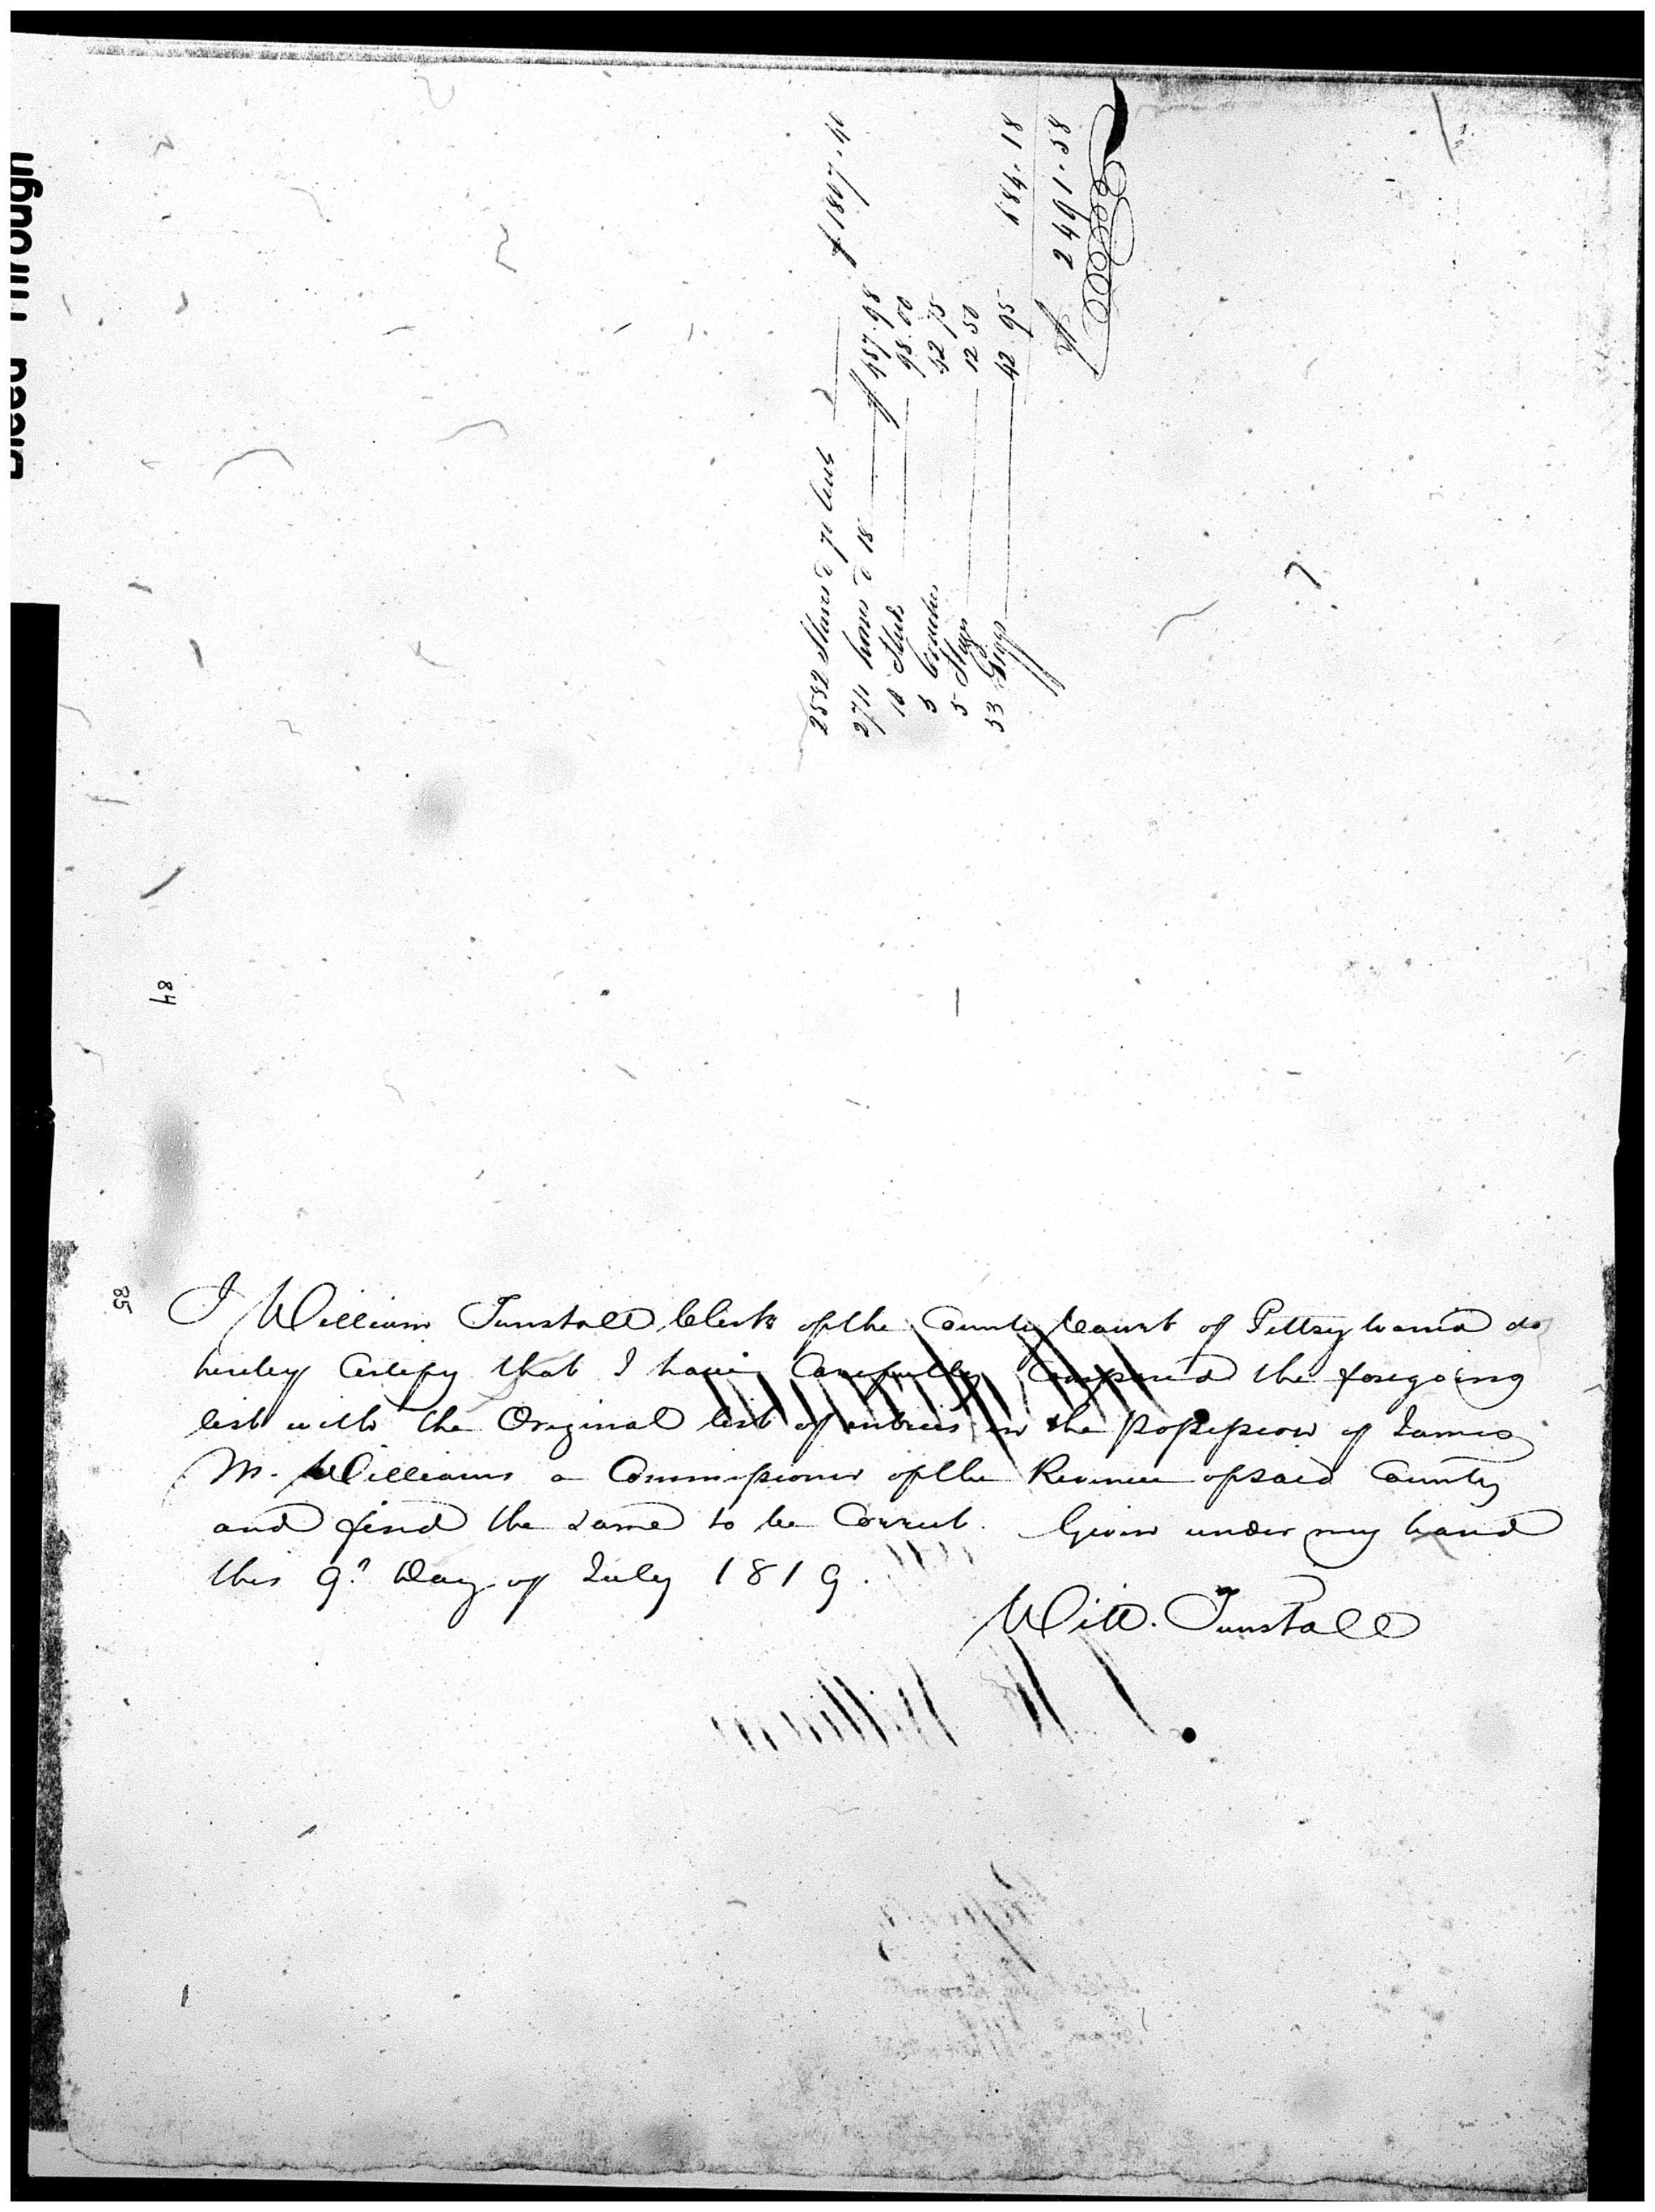 Bleed Through
2582 Slaves @ 70 Cent $ 1807.40
2711 horses @ 18 $ 487.98
10 Studs 98.00
5 Stages 12 50
33 Giggs 42 95 684.18
$ 2491.58
84
85
I William Tunstall Clerk of the County Court of Pittsylvania do
hereby Certify that I have Carefully Compared the foregoing
list with the Original list of entries in the possession of James
M. Williams a Commissioner of the Revenue of said County
and find the same to be Correct. Given under my hand
this 9th Day of July 1819.
Will. Tunstall